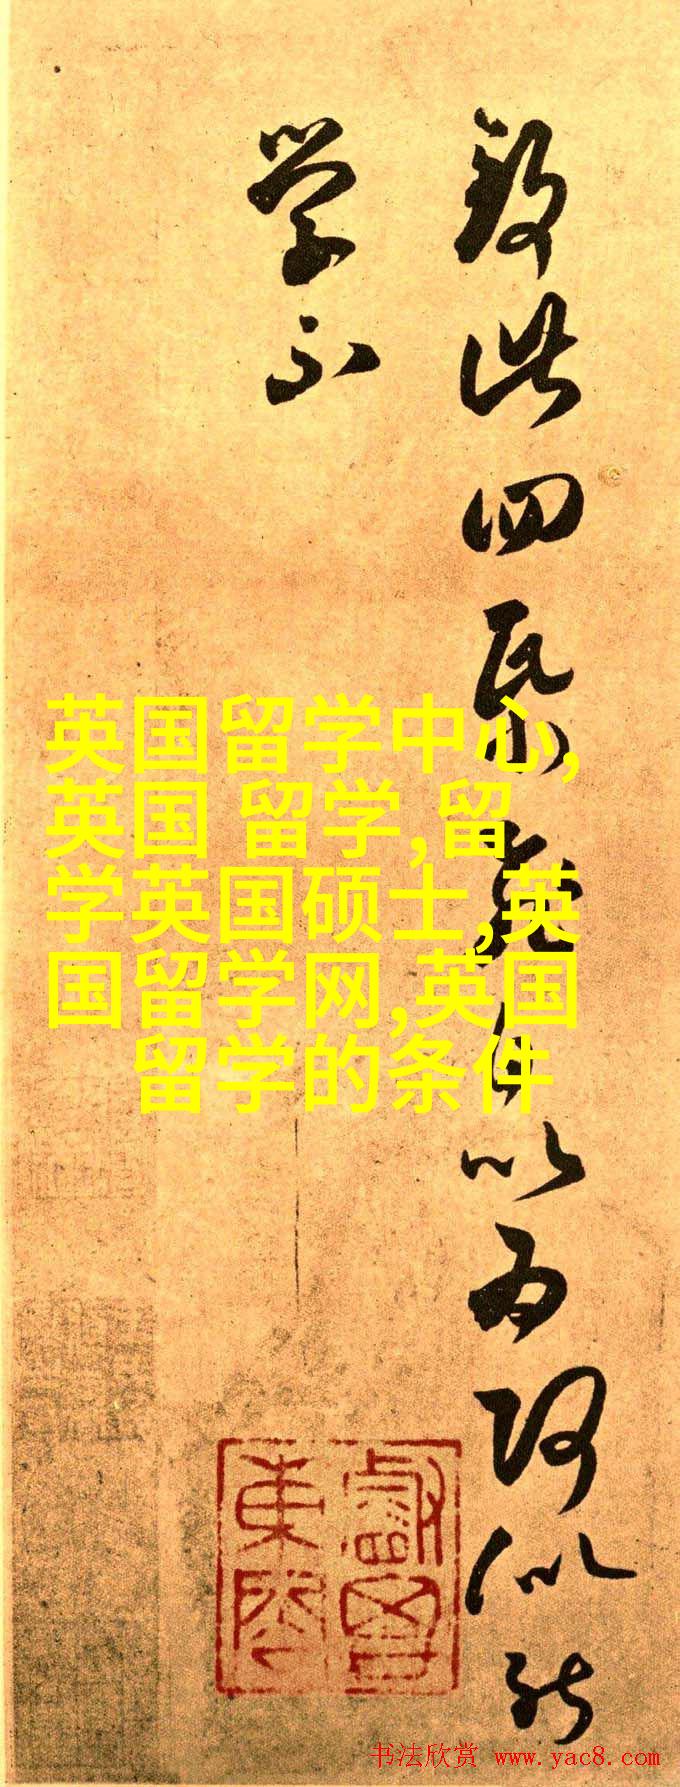 致此四票
以为
似能
学不
英国留学中心,
英国 留学,留
学英国硕士,英
国留学网,英国
留学的条件
书法欣赏 www.yac8.com